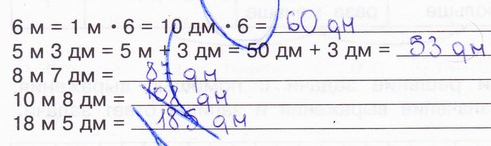 6 м = 1 м · 6 = 10 дм · 6 = 60 дм
5 м 3 дм = 5 м + 3 дм = 50 дм + 3 дм = 53 дм
8 м 7 дм = 87 дм
10 м 8 дм = 108 дм
18 м 5 дм = 185 дм